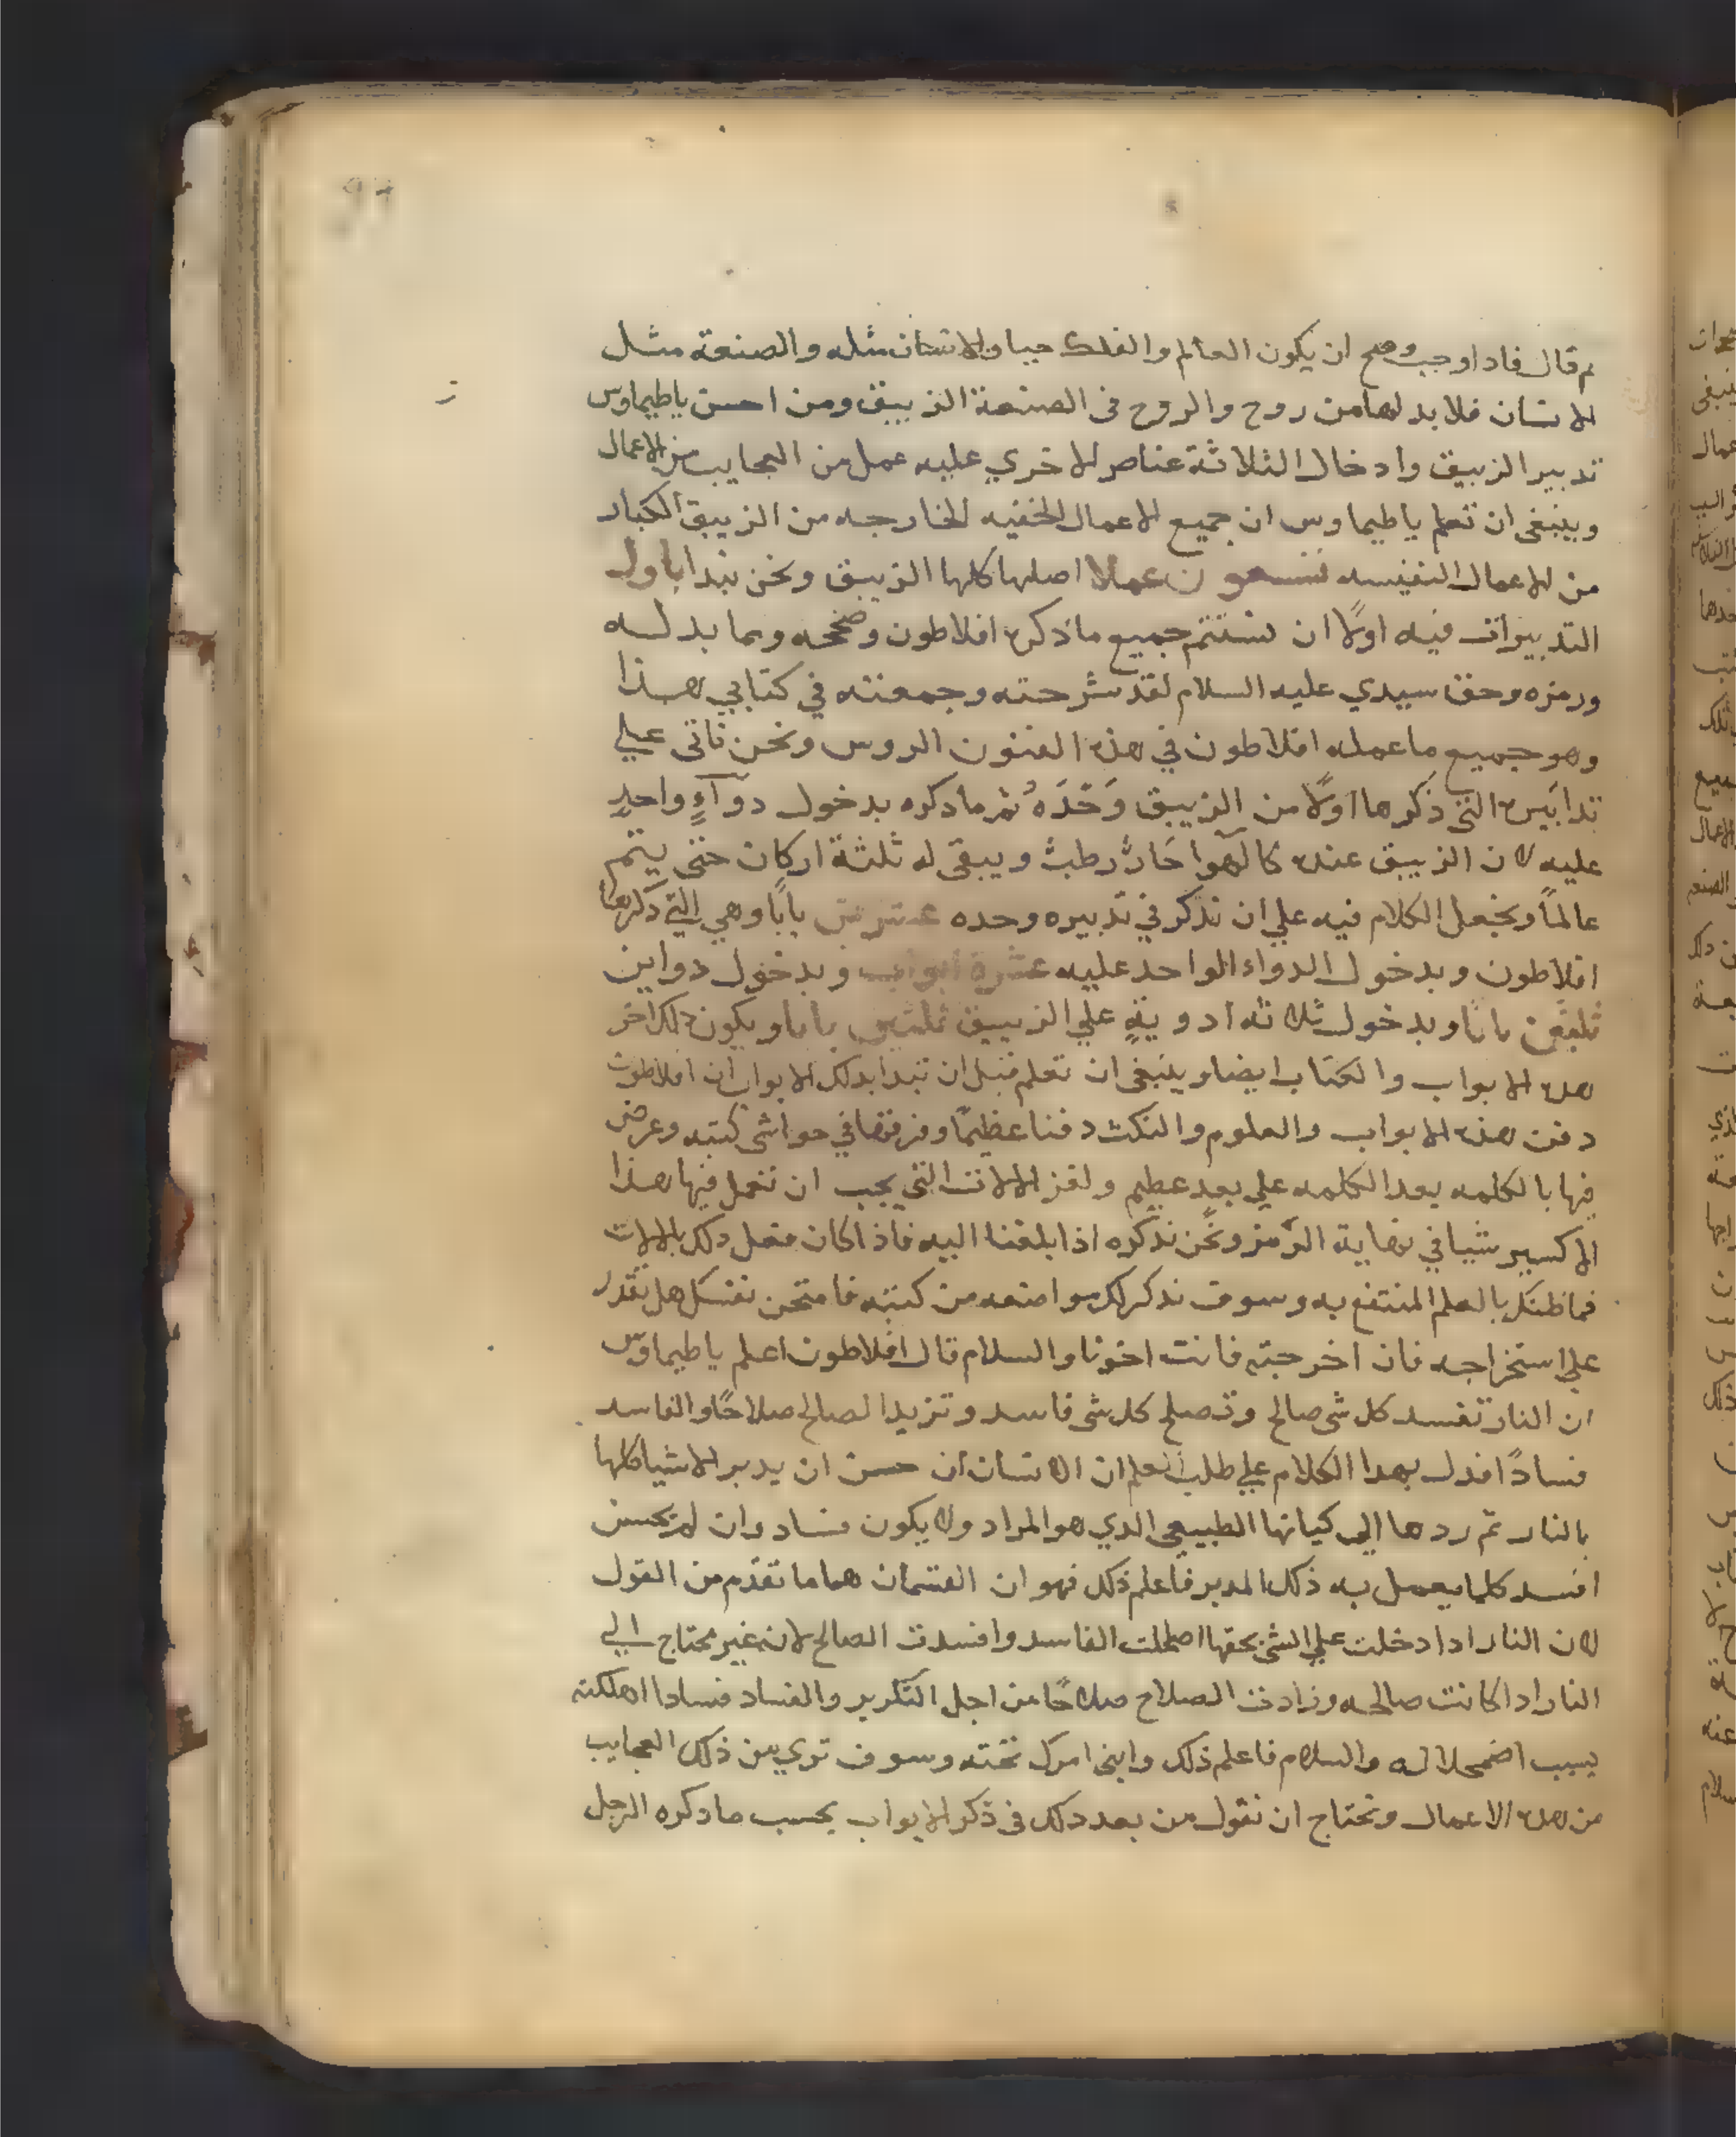 ثم قال فاذا وجب وصح ان يكون العالم والفلك حيا والانسان مثله والصنعة مثل
الانسان فلا بد لها من روح والروح في الصنعة الزيبق ومن احسن ياطيماوس
تدبير الزيبق وادخال الثلاثة عناصر الاخري عليه عمل من العجايب من الاعمال
وينبغى ان تعلم ياطيماوس ان جميع الاعمال الخفيه الخارجه من الزيبق الكبار
من الاعمال النفيسه تسعون عملا اصلها كلها الزيبق ونحن نبدا باول
التدبيرات فيه اولًا ان نستتم جميع ما ذكره افلاطون وصححه وما بدله
ورمزه وحق سيدي عليه السلام لقد شرحته وجمعته في كتابي هذا
وهو جميع ما عمله افلاطون في هذه الفنون الروس ونحن ناتى علي
تدابيره التى ذكرها اولًا من الزيبق وَحْدَهُ ثم ما دكره بدخول دوآءٍ واحدٍ
عليه لان الزيبق عنده كالهوا حَارٌّ رطبٌ ويبقى له ثلثة اركان حتى يتم
عالماً ونجعل الكلام فيه علي ان نذكر في تدبيره وحده عشرين باباً وهي التي ذكرها
افلاطون وبدخول الدواء الواحد عليه عشرة ابواب وبدخول دواين
ثلثين بابا وبدخول ثلاثه ادويةٍ علي الزيبق ثلثين بابا ويكون ذلك اخر
هذه الابواب والكتاب ايضا وينبغى ان تعلم قبل ان نبدا بدلك الابواب ان افلاطون
دفن هذه الابواب والعلوم والنكت دفنا عظيمًا وفرقها في حواشى كتبه وعرض
فيها بالكلمه بعد الكلمه علي بعدٍ عظيم ولغز الالات التي يجب ان تعمل فيها هذا
الاكسير شيا في نهاية الرّمز ونحن نذكره اذا بلغنا اليه فاذا كان فعل دلك بالالات
فما ظنك بالعلم المنتفع به وسوف نذكر لك مواضعه من كتبه فامتحن نفسك هل تقدر
علي استخراجه فان اخرجته فانت اخونا والسلام قال افلاطون اعلم ياطيماوس
ان النار تفسد كل شى صالح وتصلح كل شى فاسد وتزيد الصالح صلاحًا والفاسد
فسادًا فدل بهدا الكلام علي طلب العلم ان الانسان ان حسن ان يدبر الاشيا كلها
بالنار ثم ردها الي كيانها الطبيعي الدي هو المراد ولا يكون فساد وان لم يحسن
افسد كلما يعمل به ذلك المدبر فاعلم ذلك فهو ان القسمان هما ما تقدّم من القول
لان النار ادا دخلت علي الشى بحقها اصلحت الفاسد وافسدت الصالح لانه غير محتاج الي
النار ادا كانت صالحه وزادت الصلاح صلاحًا من اجل التكرير والفساد فسادا اهلكته
بسبب اضمحلاله والسلام فاعلم ذلك وابنى امرك تحته وسوف ترى من ذلك العجايب
من هذه الاعمال ونحتاج ان نقول من بعد دلك فى ذكر الابواب بحسب ما دكره الرجل